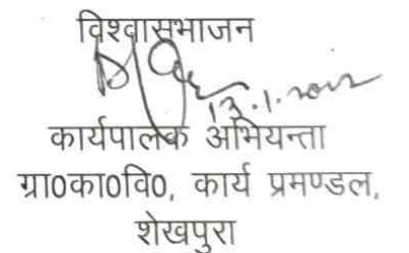 विश्वासभाजन
13.1.2012
कार्यपालक अभियन्ता
ग्रा0का0वि0, कार्य प्रमण्डल,
शेखपुरा